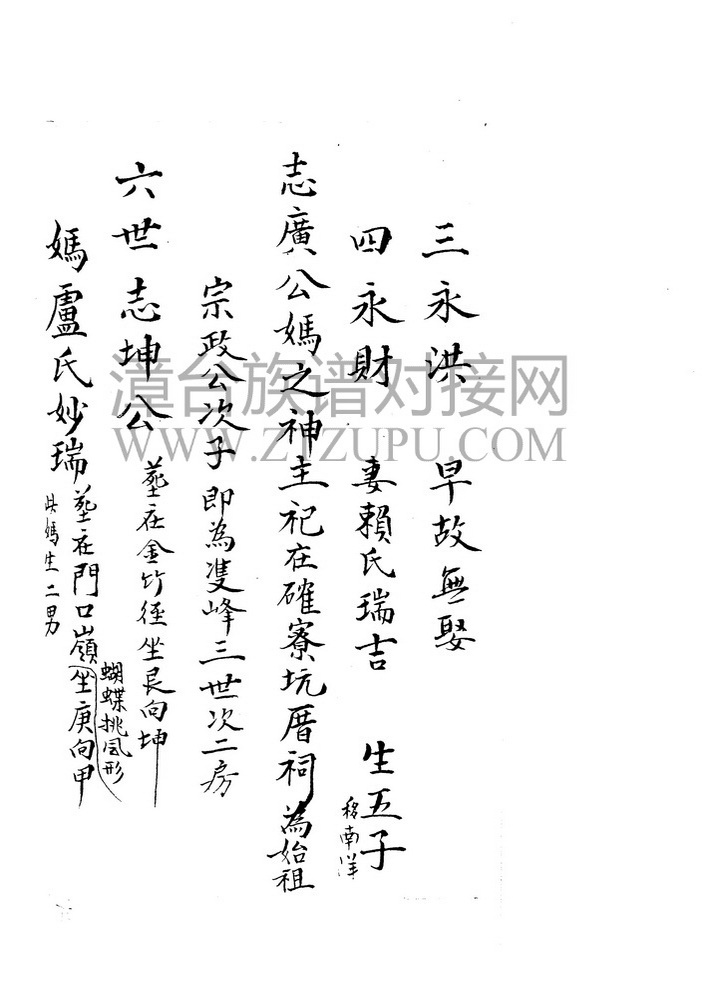 三永洪 早故無娶
四永財 妻賴氏瑞吉 生五子
移南洋
志廣公媽之神主祀在確寮坑厝祠為始祖
宗政公次子即為雙峰三世次二房
六世志坤公 塟在金竹徑坐艮向坤
蝴蝶挑風形
媽盧氏妙瑞塟在門口嶺坐庚向甲
此媽生二男
漳台族谱对接网
WWW.ZTZUPU.COM